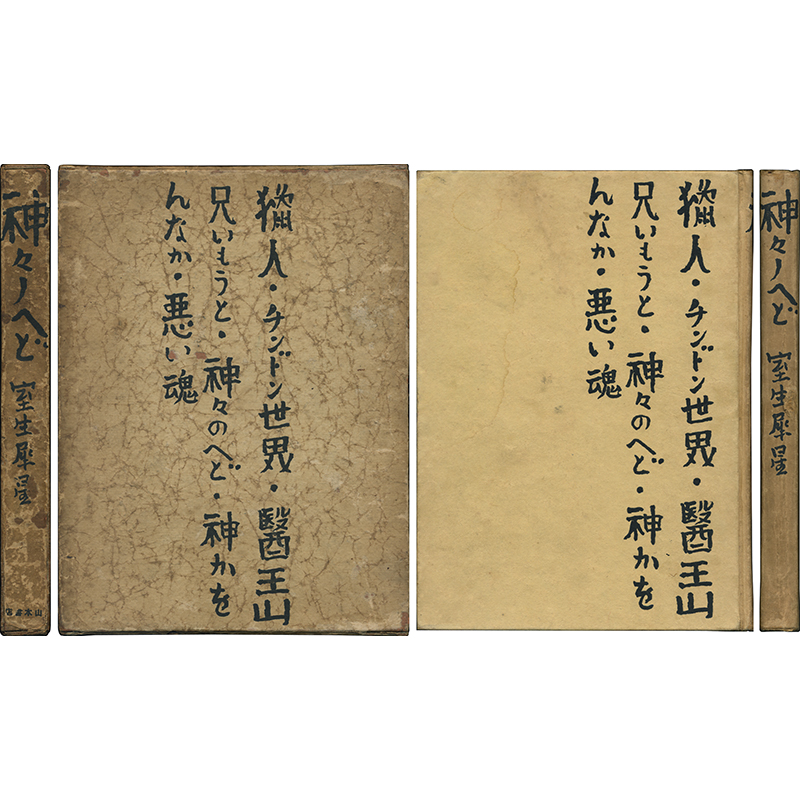 神々ノへど 室生犀星
山本書店
獵人・チンドン世界・醫王山
兄いもうと・神々のへど・神かを
んなか・悪い魂
獵人・チンドン世界・醫王山
兄いもうと・神々のへど・神かを
んなか・悪い魂
神々ノへど 室生犀星